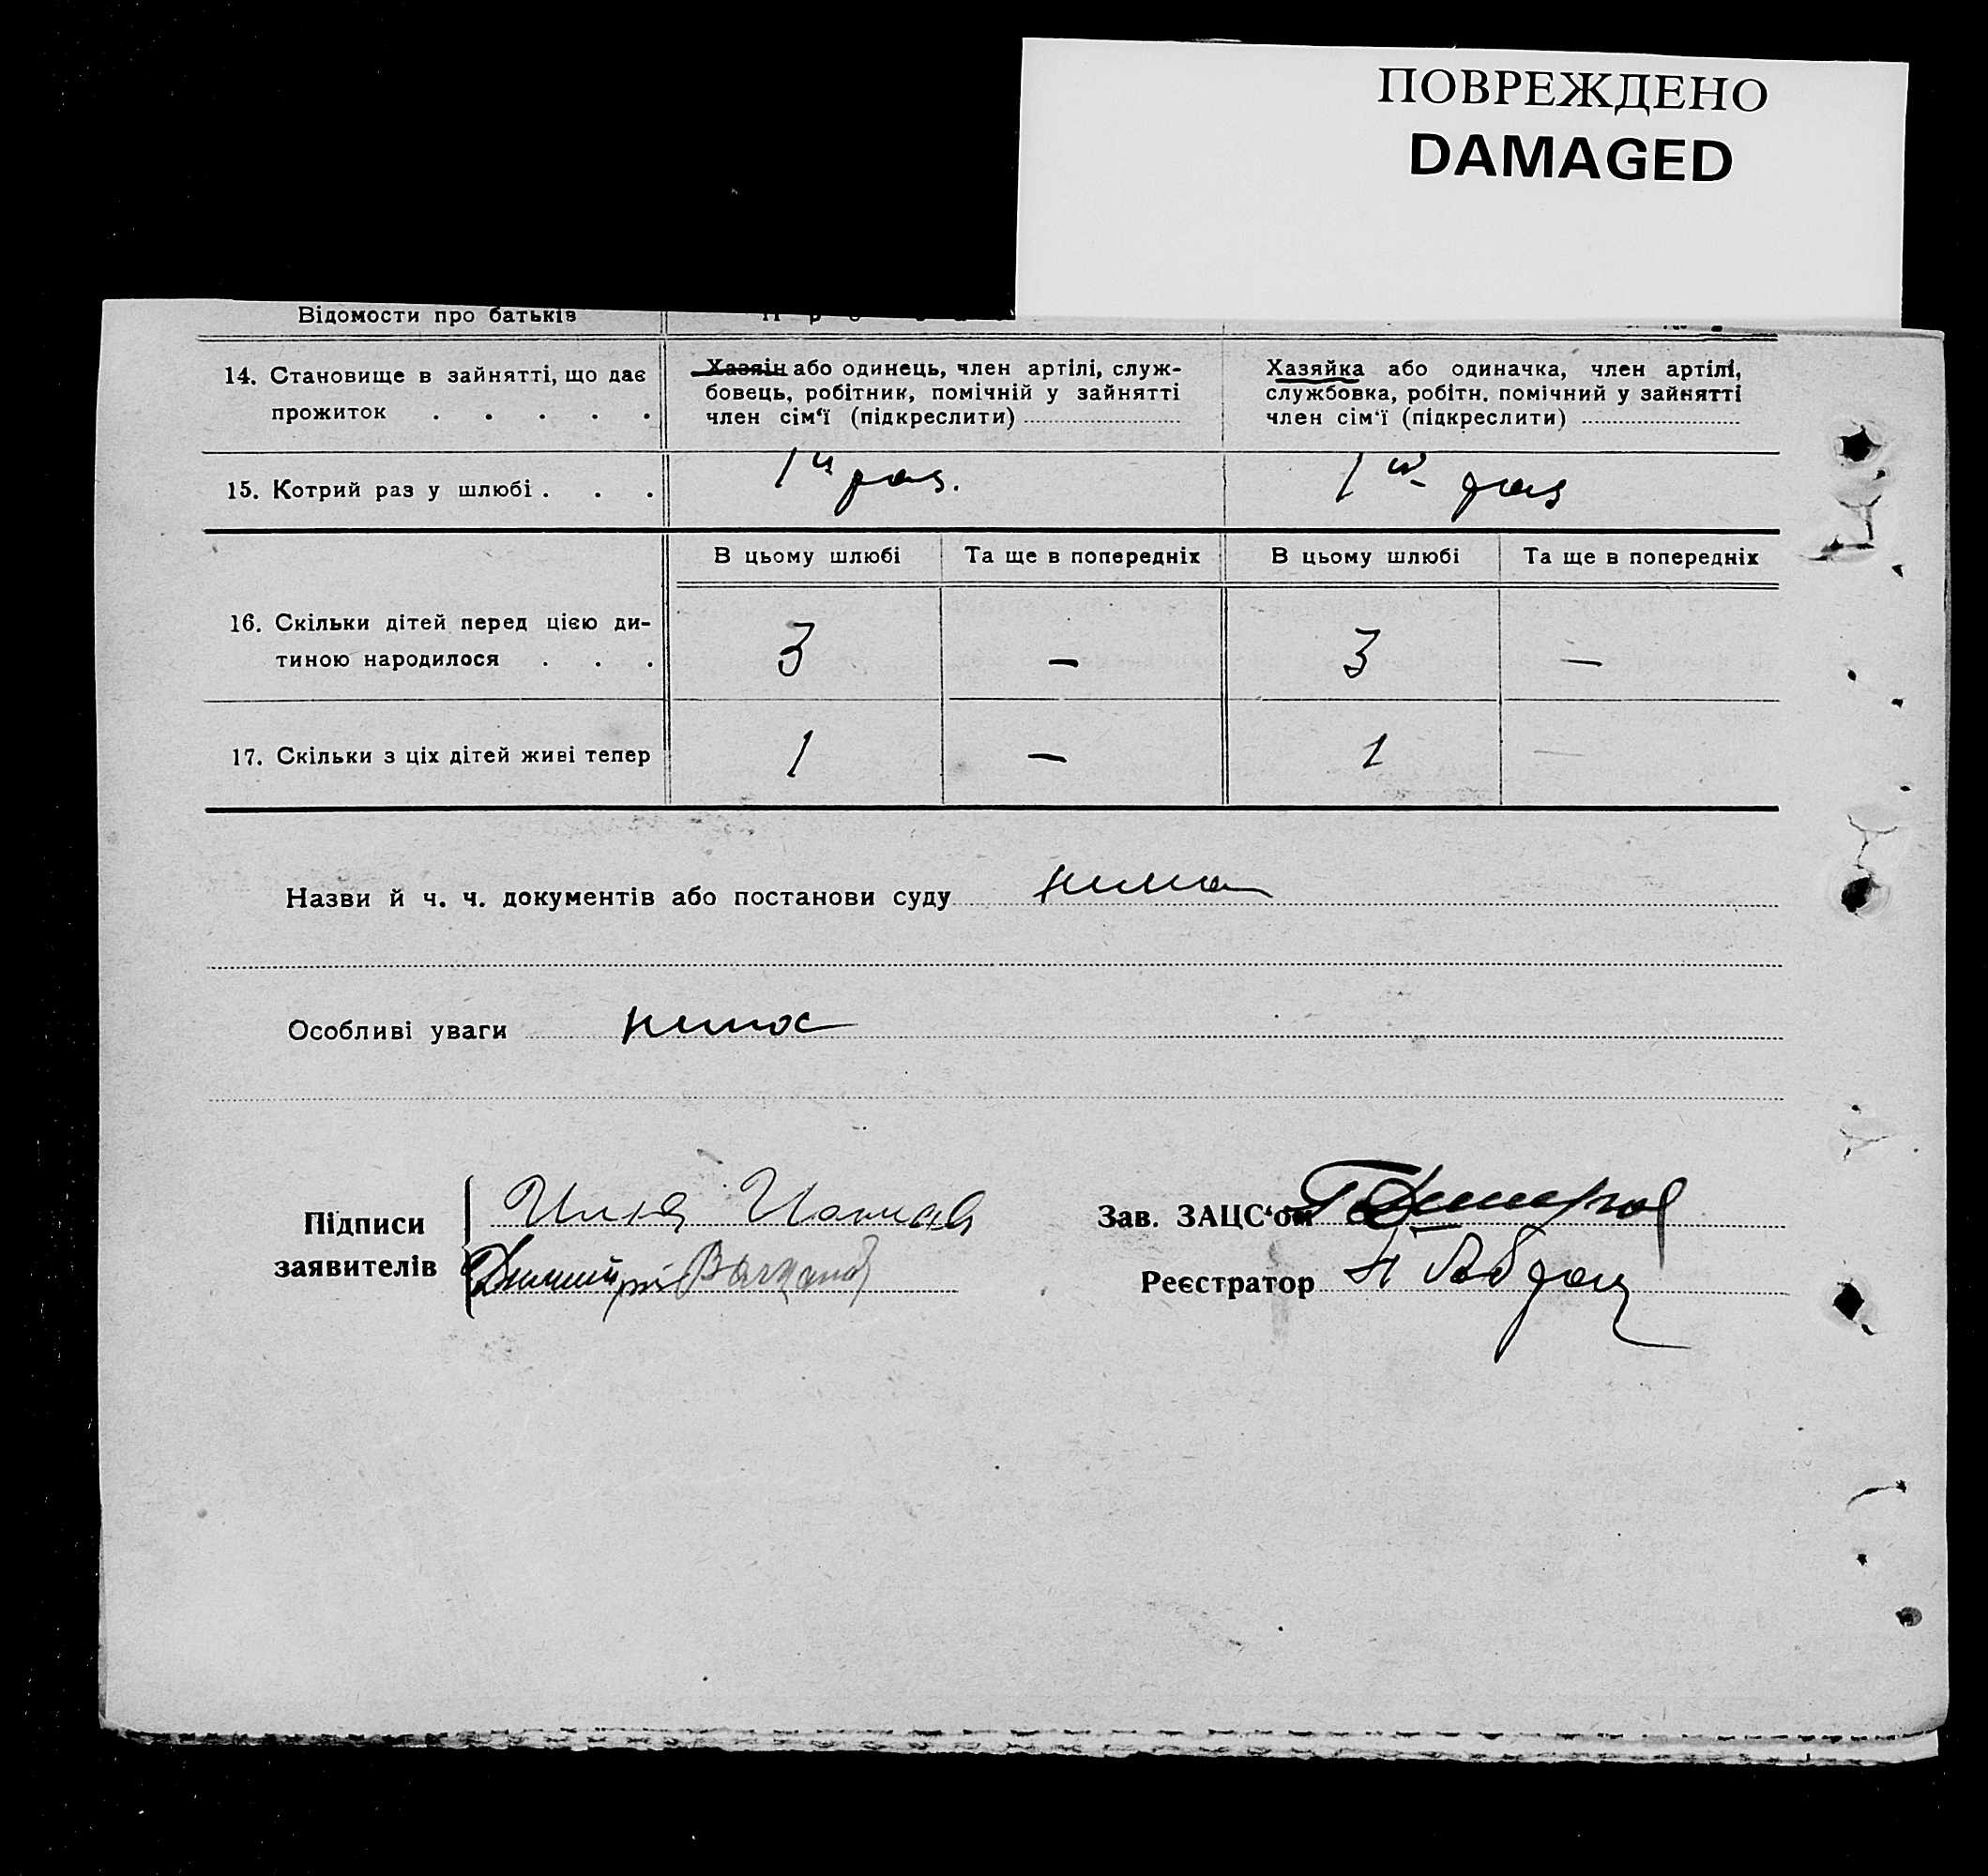 ПОВРЕЖДЕНО
DAMAGED
Відомости про батьків
14. Становище в зайнятті, що дає
прожиток . . . . .
Хазяін або одинець, член артілі, служ-
бовець, робітник, помічній у зайнятті
член сім'ї (підкреслити)
Хазяйка або одиначка, член артілі,
службовка, робітн. помічний у зайнятті
член сім'ї (підкреслити)
15. Котрий раз у шлюбі . . .
1й раз.
1й раз
В цьому шлюбі Та ще в попередніх В цьому шлюбі Та ще в попередніх
16. Скільки дітей перед цією ди-
тиною народилося . . .
3 – 3 –
17. Скільки з ціх дітей живі тепер 1 – 1 –
Назви й ч. ч. документів або постанови суду нима
Особливі уваги нима
Підписи
заявителів
Илия
Димитрий
Зав. ЗАЦС'ом
Реєстратор